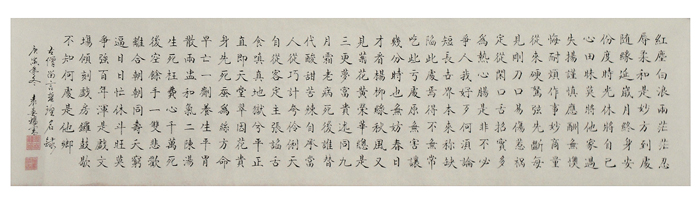 紅塵白浪兩茫茫忍
辱柔和是妙方到處
隨緣延歲月終身安
份度時光休將自己
心田昧莫將他家過
失揚謹慎應酬無懊
悔耐煩作事妙商量
從來硬弩弦先斷每
見剛刀口易傷惹禍
從閑口招多
為熱心腸是非不必
爭人我好歹何須論
短長世界本來稱缺
陷此處焉得不無常
吃些虧處無害讓
幾分時也無妨春日
才看楊柳綠秋風又
見黃花黃榮華總是
三更夢富貴還同九
月霜老病死後誰替
代酸甜苦辣自承當
人從巧計誇伶俐天
自從容定主張諂舌
貪嗔真地獄公平正
直即天堂因花貴
身先死蠶為絲方命
早亡一劑養生平胃
散兩盅和氣二陳湯
生死枉費心千萬死
後空餘手一雙悲歡
離合朝朝同壽夭窮
通日日忙休鬥狂莫
爭強百年渾是戲文
場頃刻戲房鑼鼓歇
不知何處是他鄉